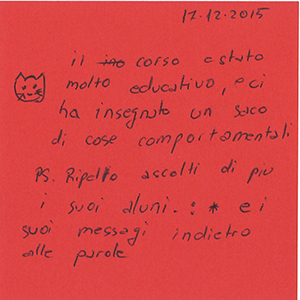 17-12-2015
il ino corso e stato
molto educativo, e ci
ha insegnato un saco
di cose comportamentali
PS. Ripeto ascolti di piu
i suoi aluni. : * e i
suoi messagi indietro
alle parole